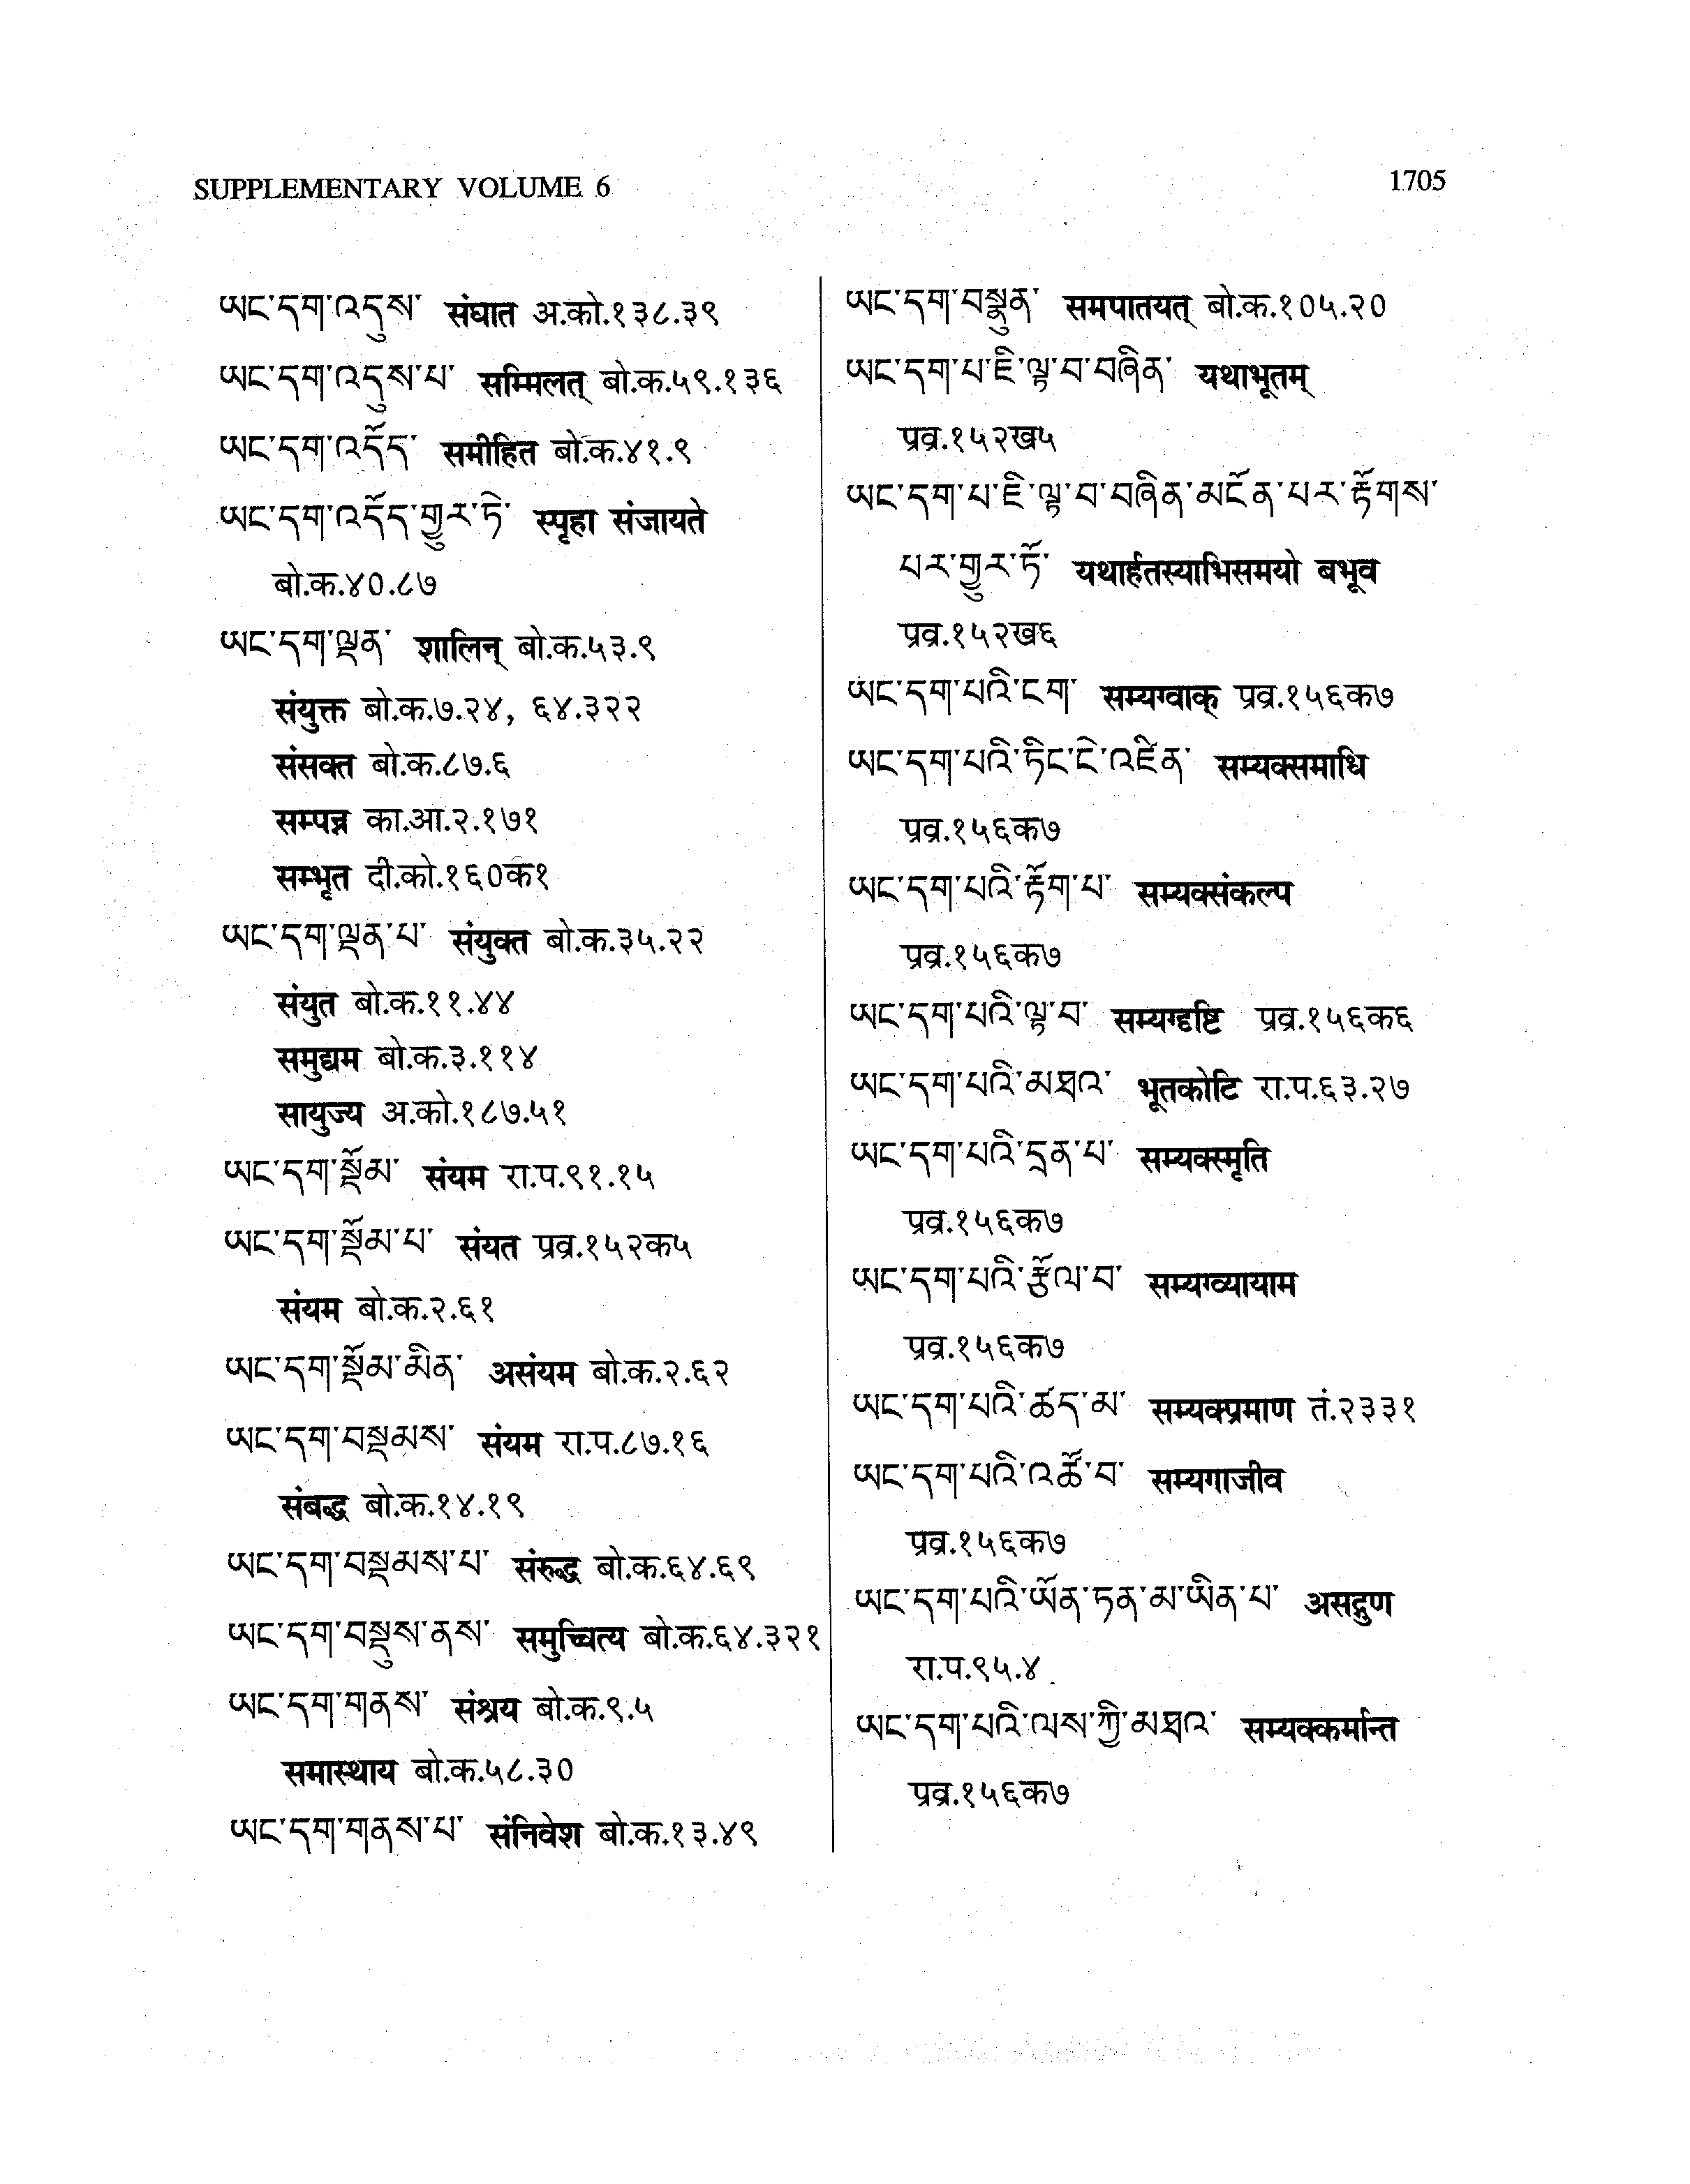 SUPPLEMENTARY VOLUME 6
1705
ཡང་དག་འདུས་ संघात अ.को.१३८.३९
ཡང་དག་འདུས་པ་ सम्मिलत् बो.क.५९.१३६
ཡང་དག་འདོད་ समीहित बो.क.४१.९
ཡང་དག་འདོད་གྱུར་ཏེ་ स्पृहा संजायते
बो.क.४०.८७
ཡང་དག་ལྡན་ शालिन् बो.क.५३.९
संयुक्त बो.क.७.२४, ६४.३२२
संसक्त बो.क.८७.६
सम्पन्न का.आ.२.१७१
सम्भृत दी.को.१६०क१
ཡང་དག་ལྡན་པ་ संयुक्त बो.क.३५.२२
संयुत बो.क.११.४४
समुद्यम बो.क.३.११४
सायुज्य अ.को.१८७.५१
ཡང་དག་སྡོམ་ संयम रा.प.९१.१५
ཡང་དག་སྡོམ་པ་ संयत प्रव्र.१५२क५
संयम बो.क.२.६१
ཡང་དག་སྡོམ་མིན་ असंयम बो.क.२.६२
ཡང་དག་བསྡམས་ संयम रा.प.८७.१६
संबद्ध बो.क.१४.१९
ཡང་དག་བསྡམས་པ་ संरुद्ध बो.क.६४.६९
ཡང་དག་བསྡུས་ནས་ समुच्चित्य बो.क.६४.३२१
ཡང་དག་གནས་ संश्रय बो.क.९.५
समास्थाय बो.क.५८.३०
ཡང་དག་གནས་པ་ संनिवेश बो.क.१३.४९
ཡང་དག་བསྣུན་ समपातयत् बो.क.१०५.२०
ཡང་དག་པ་ཇི་ལྟ་བ་བཞིན་ यथाभूतम्
प्रव्र.१५२ख५
ཡང་དག་པ་ཇི་ལྟ་བ་བཞིན་མངོན་པར་རྟོགས་
པར་གྱུར་ཏོ་ यथार्हतस्याभिसमयो बभूव
प्रव्र.१५२ख६
ཡང་དག་པའི་ངག་ सम्यग्वाक् प्रव्र.१५६क७
ཡང་དག་པའི་ཏིང་ངེ་འཛིན་ सम्यक्समाधि
प्रव्र.१५६क७
ཡང་དག་པའི་རྟོག་པ་ सम्यक्संकल्प
प्रव्र.१५६क७
ཡང་དག་པའི་ལྟ་བ་ सम्यग्दृष्टि प्रव्र.१५६क६
ཡང་དག་པའི་མཐའ་ भूतकोटि रा.प.६३.२७
ཡང་དག་པའི་དྲན་པ་ सम्यक्स्मृति
प्रव्र.१५६क७
ཡང་དག་པའི་རྩོལ་བ་ सम्यग्व्यायाम
प्रव्र.१५६क७
ཡང་དག་པའི་ཚད་མ་ सम्यक्प्रमाण तं.२३३१
ཡང་དག་པའི་འཚོ་བ་ सम्यगाजीव
प्रव्र.१५६क७
ཡང་དག་པའི་ཡོན་ཏན་མ་ཡིན་པ་ असद्गुण
रा.प.९५.४
ཡང་དག་པའི་ལས་ཀྱི་མཐའ་ सम्यक्कर्मान्त
प्रव्र.१५६क७